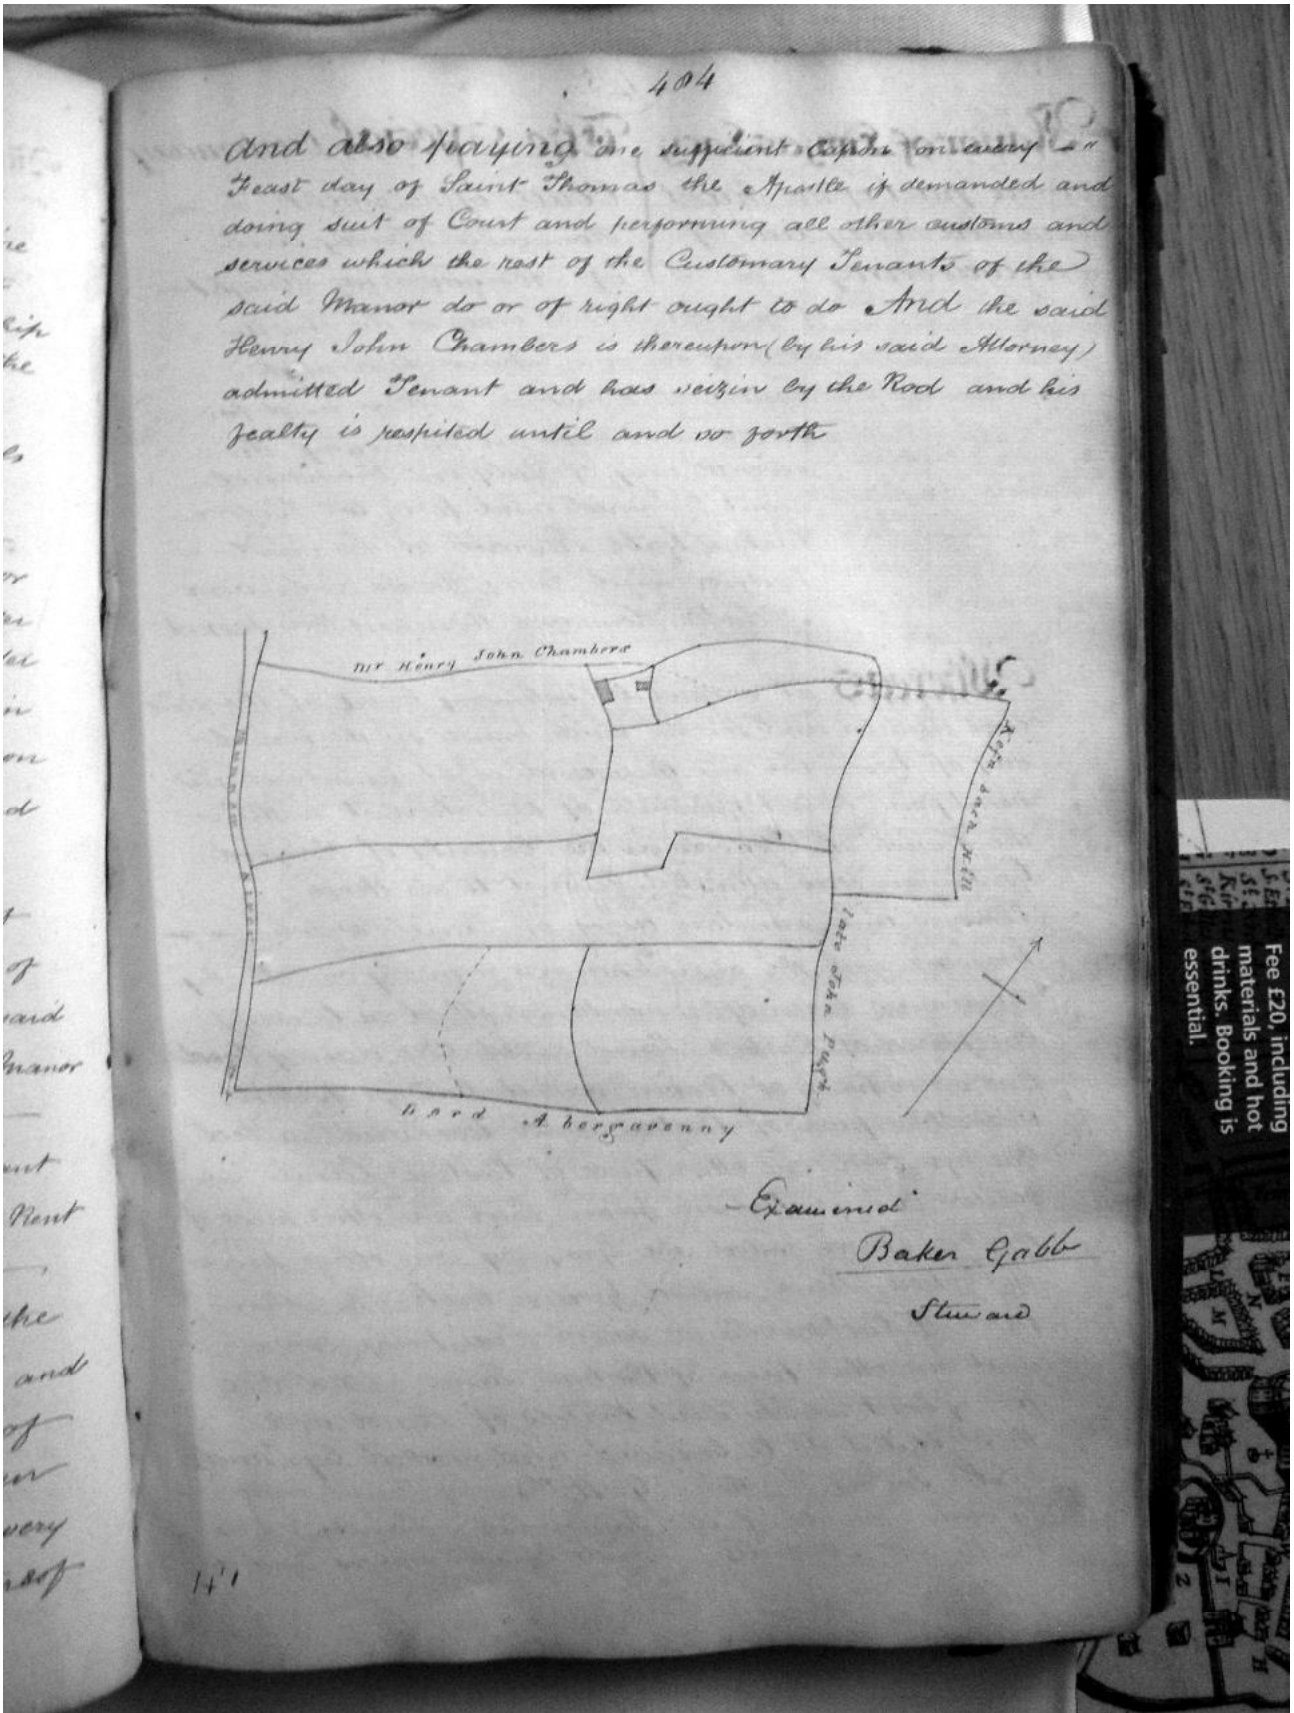 484
And also paying one sufficient Capon on every
Feast day of Saint Thomas the Apostle if demanded and
doing suit of Court and performing all other customs and
services which the rest of the Customary Tenants of the
said Manor do or of right ought to do And the said
Henry John Chambers is thereupon (by his said Attorney)
admitted Tenant and has seizin by the Rod and his
fealty is respited until and so forth
Mr Henry John Chambers
Hill
late John Pugh
Lord Abergavenny
Examined
Baker Gabb
Steward
the
of
said
Manor
Rent
the
and
of
Fee £20, including
materials and hot
drinks. Booking is
essential.